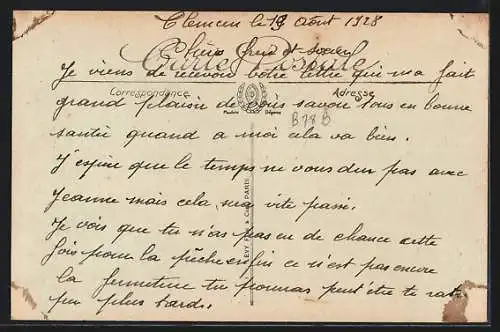 Clemcen le 19 Août 1928
Chers frère et soeur
Carte Postale
Je viens de recevoir votre lettre qui ma fait
Correspondance Adresse
grand plaisir de vous savoir tous en bonne
B 78 B
santé quand a moi cela va bien.
J'espère que le temps ne vous dur pas avec
Jeanne mais cela sera vite passé.
Je vois que tu n'as pas eu de chance cette
fois pour la pêche enfin ce n'est pas encore
la fermeture tu pourras peut être te
un peu plus tard.
LEVY FILS & Cie PARIS